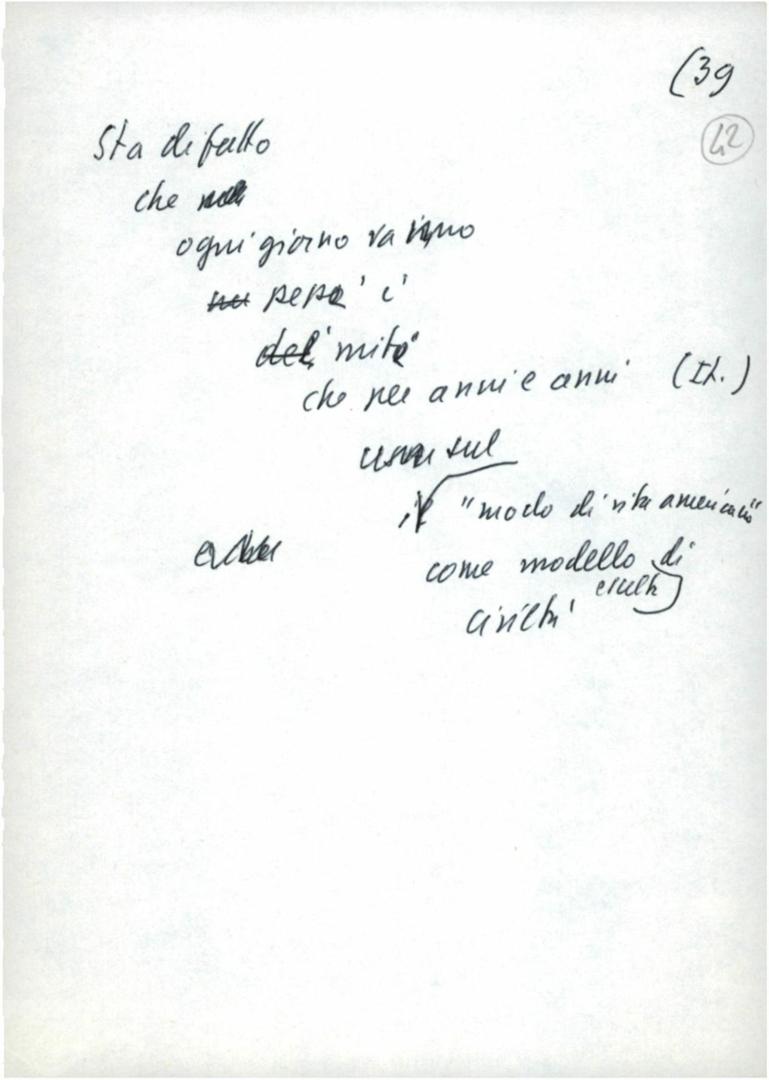 (39
42
Sta di fatto
che
ogni giorno vanno
i
miti
che per anni e anni (It.)
sul
il "modo di vita americano"
come modello di
civiltà